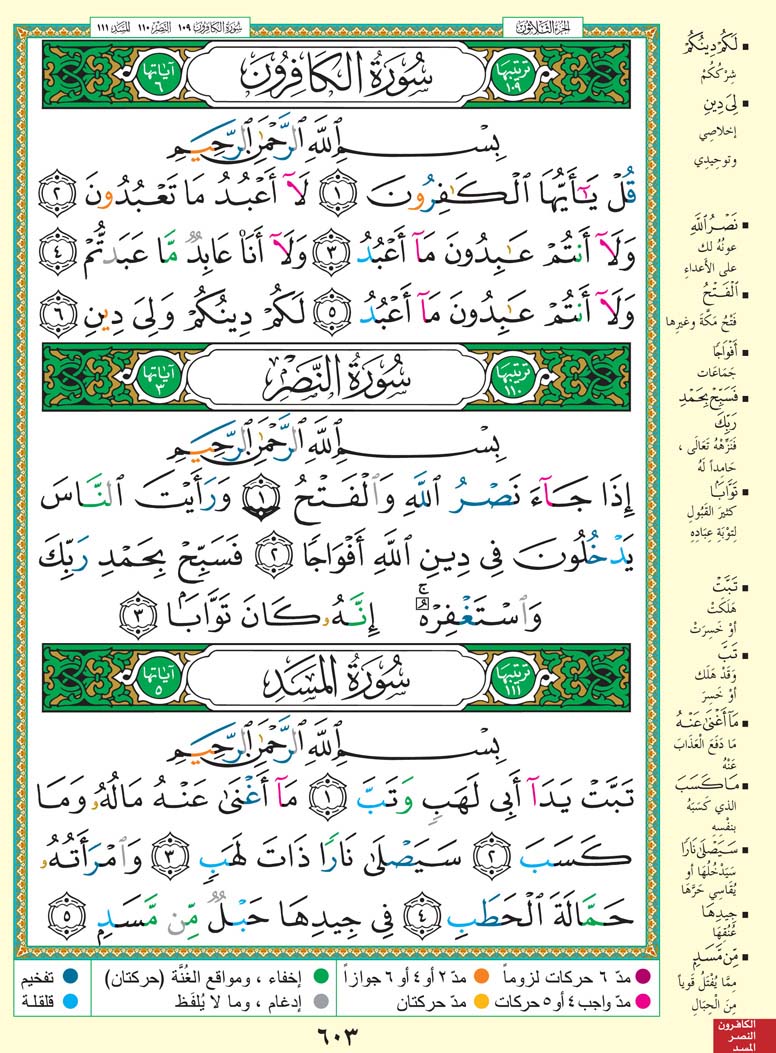 الجزء الثلاثون
سورة الكافرون ١٠٩ النصر ١١٠ المسد ١١١
ترتيبها ١٠٩
سُورَةُ الكَافِرُون
آياتها ٦
بِسْمِ ٱللَّهِ ٱلرَّحْمَٰنِ ٱلرَّحِيمِ
قُلْ يَٰٓأَيُّهَا ٱلْكَٰفِرُونَ ١ لَآ أَعْبُدُ مَا تَعْبُدُونَ ٢
وَلَآ أَنتُمْ عَٰبِدُونَ مَآ أَعْبُدُ ٣ وَلَآ أَنَا۠ عَابِدٌ مَّا عَبَدتُّمْ ٤
وَلَآ أَنتُمْ عَٰبِدُونَ مَآ أَعْبُدُ ٥ لَكُمْ دِينُكُمْ وَلِىَ دِينِ ٦
ترتيبها ١١٠
سُورَةُ النَّصْرِ
آياتها ٣
بِسْمِ ٱللَّهِ ٱلرَّحْمَٰنِ ٱلرَّحِيمِ
إِذَا جَآءَ نَصْرُ ٱللَّهِ وَٱلْفَتْحُ ١ وَرَأَيْتَ ٱلنَّاسَ
يَدْخُلُونَ فِى دِينِ ٱللَّهِ أَفْوَاجًا ٢ فَسَبِّحْ بِحَمْدِ رَبِّكَ
وَٱسْتَغْفِرْهُ ۚ إِنَّهُۥ كَانَ تَوَّابًۢا ٣
ترتيبها ١١١
سُورَةُ المَسَدِ
آياتها ٥
بِسْمِ ٱللَّهِ ٱلرَّحْمَٰنِ ٱلرَّحِيمِ
تَبَّتْ يَدَآ أَبِى لَهَبٍ وَتَبَّ ١ مَآ أَغْنَىٰ عَنْهُ مَالُهُۥ وَمَا
كَسَبَ ٢ سَيَصْلَىٰ نَارًا ذَاتَ لَهَبٍ ٣ وَٱمْرَأَتُهُۥ
حَمَّالَةَ ٱلْحَطَبِ ٤ فِى جِيدِهَا حَبْلٌ مِّن مَّسَدٍۭ ٥
لَكُمْ دِينُكُمْ
شِرْكُكُمْ
لِىَ دِينِ
إخلاصِي
وتوحِيدِي
نَصْرُ ٱللَّهِ
عونُهُ لك
على الأعداءِ
ٱلْفَتْحُ
فَتْحُ مكَّةَ وغيرِها
أَفْوَاجًا
جَمَاعَات
فَسَبِّحْ بِحَمْدِ
رَبِّكَ
فَنَزِّهْهُ تَعَالَى ،
حَامِداً لَهُ
تَوَّابًا
كثيرَ القَبُولِ
لِتَوْبَةِ عِبَادِهِ
تَبَّتْ
هَلَكَتْ
أوْ خَسِرَتْ
تَبَّ
وَقَدْ هَلَكَ
أوْ خَسِرَ
مَآ أَغْنَىٰ عَنْهُ
مَا دَفَعَ الْعَذَابَ
عَنْهُ
مَا كَسَبَ
الذي كَسَبَهُ
بنفْسِهِ
سَيَصْلَىٰ نَارًا
سَيَدْخُلُهَا أو
يُقَاسِي حَرَّهَا
جِيدِهَا
عُنُقِهَا
مِّن مَّسَدٍ
مِمَّا يُفْتَلُ قَوياً
مِنَ الْحِبَالِ
مدّ ٦ حركات لزوماً
مدّ ٢ أو ٤ أو ٦ جوازاً
إخفاء ، ومواقع الغُنَّة (حركتان)
تفخيم
مدّ واجب ٤ أو ٥ حركات
مدّ حركتان
إدغام ، وما لا يُلفَظ
قلقلة
٦٠٣
الكافرون
النصر
المسد